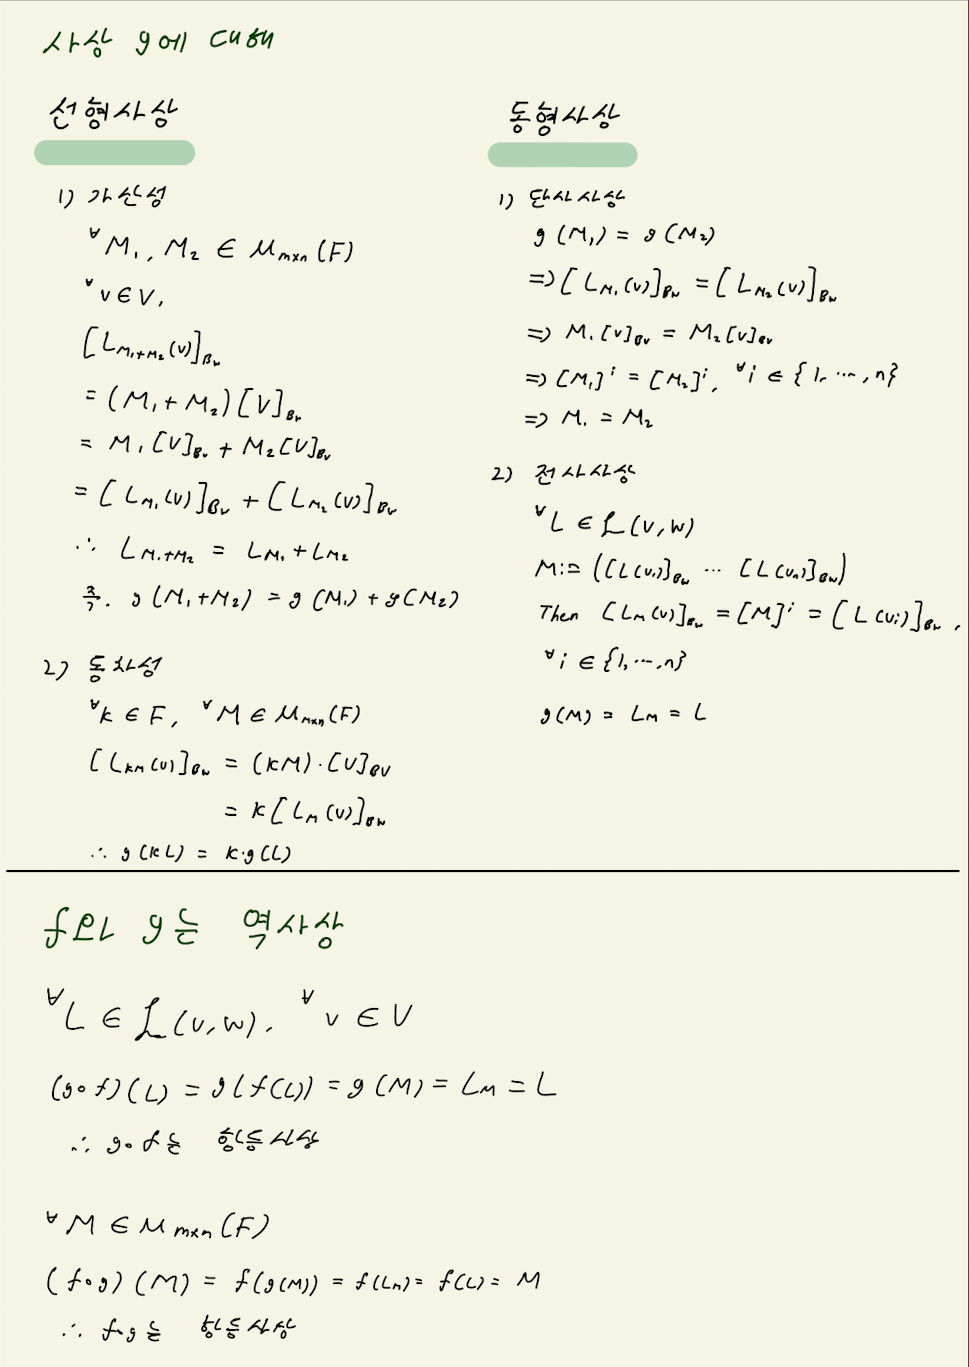 사상 g에 대해
선형사상
1) 가산성
∀M₁, M₂ ∈ Mₘₓₙ(F)
∀v∈V,
[L_{M₁+M₂}(v)]_{Bw}
= (M₁+M₂)[V]_{Bv}
= M₁[V]_{Bv} + M₂[V]_{Bv}
= [L_{M₁}(v)]_{Bw} + [L_{M₂}(v)]_{Bw}
∴ L_{M₁+M₂} = L_{M₁}+L_{M₂}
즉. g(M₁+M₂) = g(M₁)+g(M₂)
2) 동차성
∀k ∈ F, ∀M ∈ Mₘₓₙ(F)
[L_{kM}(v)]_{Bw} = (kM)·[V]_{BV}
= k[L_M(v)]_{Bw}
∴ g(kL) = k·g(L)
동형사상
1) 단사사상
g(M₁) = g(M₂)
=> [L_{M₁}(v)]_{Bw} = [L_{M₂}(v)]_{Bw}
=> M₁[v]_{Bv} = M₂[v]_{Bv}
=> [M₁]ⁱ = [M₂]ⁱ, ∀i ∈ {1, ⋯, n}
=> M₁ = M₂
2) 전사사상
∀L ∈ ℒ(V,W)
M:= ([L(v₁)]_{Bw} ⋯ [L(vₙ)]_{Bw})
Then [L_M(v)]_{Bw} = [M]ⁱ = [L(vᵢ)]_{Bw},
∀i ∈ {1,⋯,n}
g(M) = L_M = L
f와 g는 역사상
∀L ∈ ℒ(V,W), ∀v ∈ V
(g∘f)(L) = g(f(L)) = g(M) = L_M = L
∴ g∘f는 항등사상
∀M ∈ Mₘₓₙ(F)
(f∘g)(M) = f(g(M)) = f(L_M) = f(L) = M
∴ f∘g는 항등사상